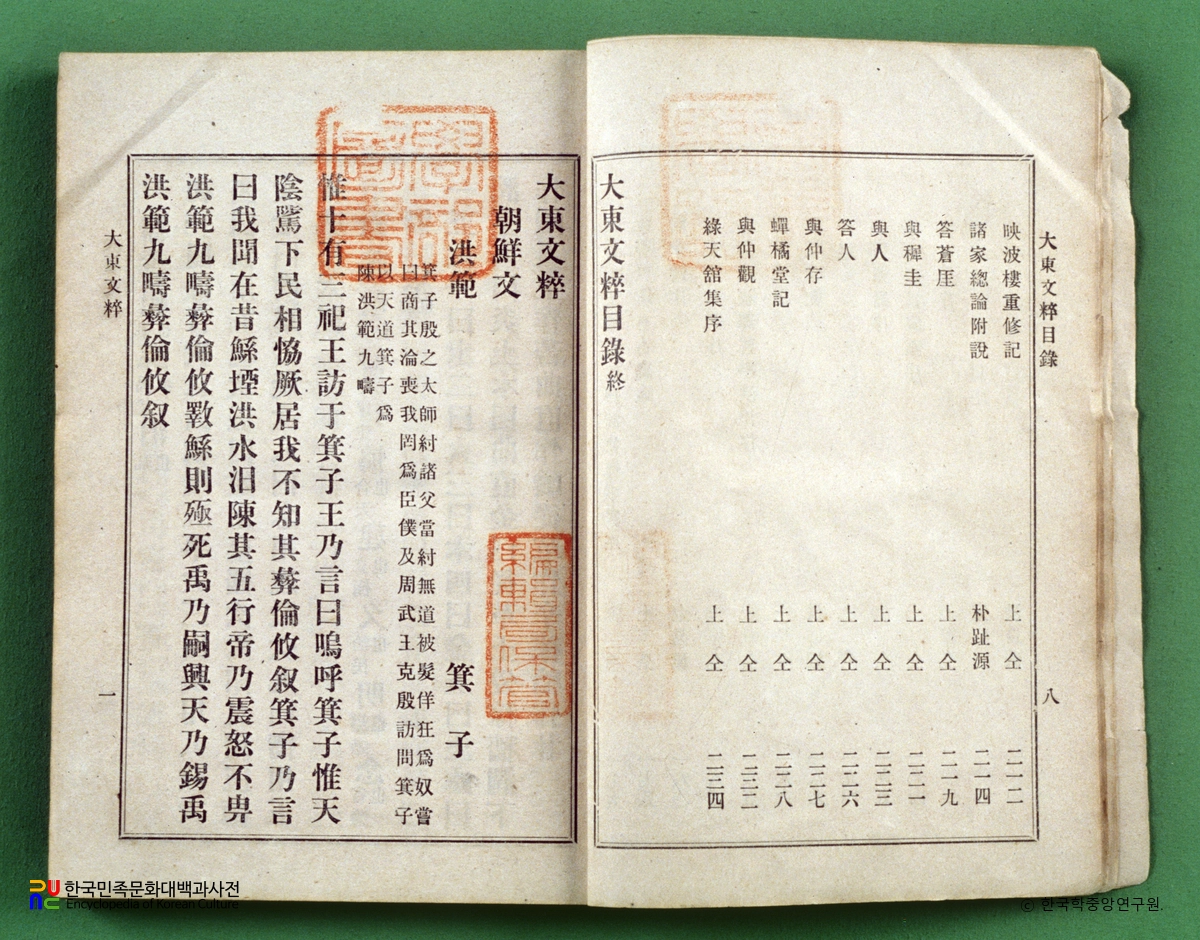 大東文粹目錄
八
映波樓重修記 上仝 二一二
諸家總論附說 朴趾源 二一四
答蒼厓 上仝 二一九
與穉圭 上仝 二二一
與人 上仝 二二三
答人 上仝 二二六
與仲存 上仝 二二七
蟬橘堂記 上仝 二二八
與仲觀 上仝 二三二
綠天舘集序 上仝 二三四
大東文粹目錄終
大東文粹
朝鮮文
洪範 箕子
箕子殷之太師紂諸父當紂無道被髮佯狂爲奴嘗
曰商其淪喪我罔爲臣僕及周武王克殷訪問箕子
以天道箕子爲
陳洪範九疇
惟十有三祀王訪于箕子王乃言曰嗚呼箕子惟天
陰騭下民相恊厥居我不知其彝倫攸叙箕子乃言
曰我聞在昔鯀堙洪水汨陳其五行帝乃震怒不畀
洪範九疇彝倫攸斁鯀則殛死禹乃嗣興天乃錫禹
洪範九疇彝倫攸叙
大東文粹
一
編輯局保管
한국민족문화대백과사전
Encyclopedia of Korean Culture
ⓒ 한국학중앙연구원.